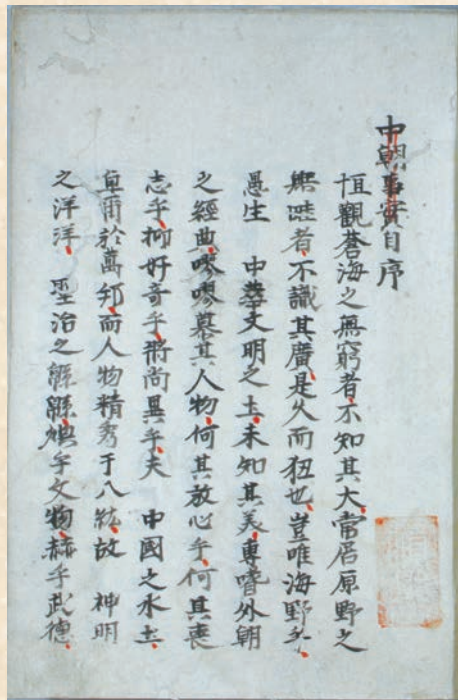 中朝事實自序
恒觀蒼海之無窮者、不知其大、常居原野之
無畦者、不識其廣、是久而狃也、豈唯海野乎、
愚生 中華文明之土、未知其美、專嗜外朝
之經典、嘐嘐慕其人物、何其放心乎、何其喪
志乎、抑好奇乎、將尚異乎、夫 中國之水土、
卓爾於萬邦、而人物精秀于八紘、故 神明
之洋洋、 聖治之緜緜、煥乎文物、赫乎武德、